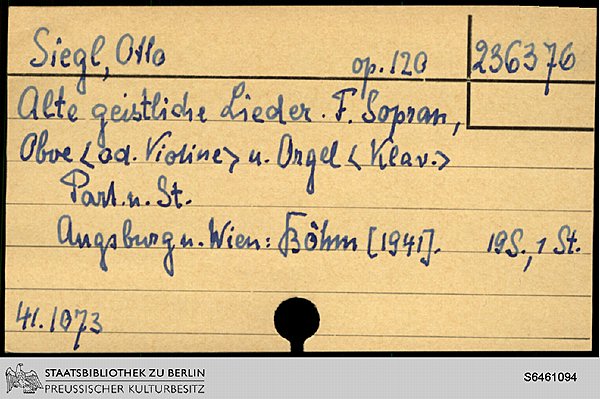 Siegl, Otto op. 120 236376
Alte geistliche Lieder. F. Sopran,
Oboe <od. Violine> u. Orgel <Klav.>
Part. u. St.
Augsburg u. Wien: Böhm [1941]. 19 S., 1 St.
41.1073
STAATSBIBLIOTHEK ZU BERLIN
PREUSSISCHER KULTURBESITZ
S6461094